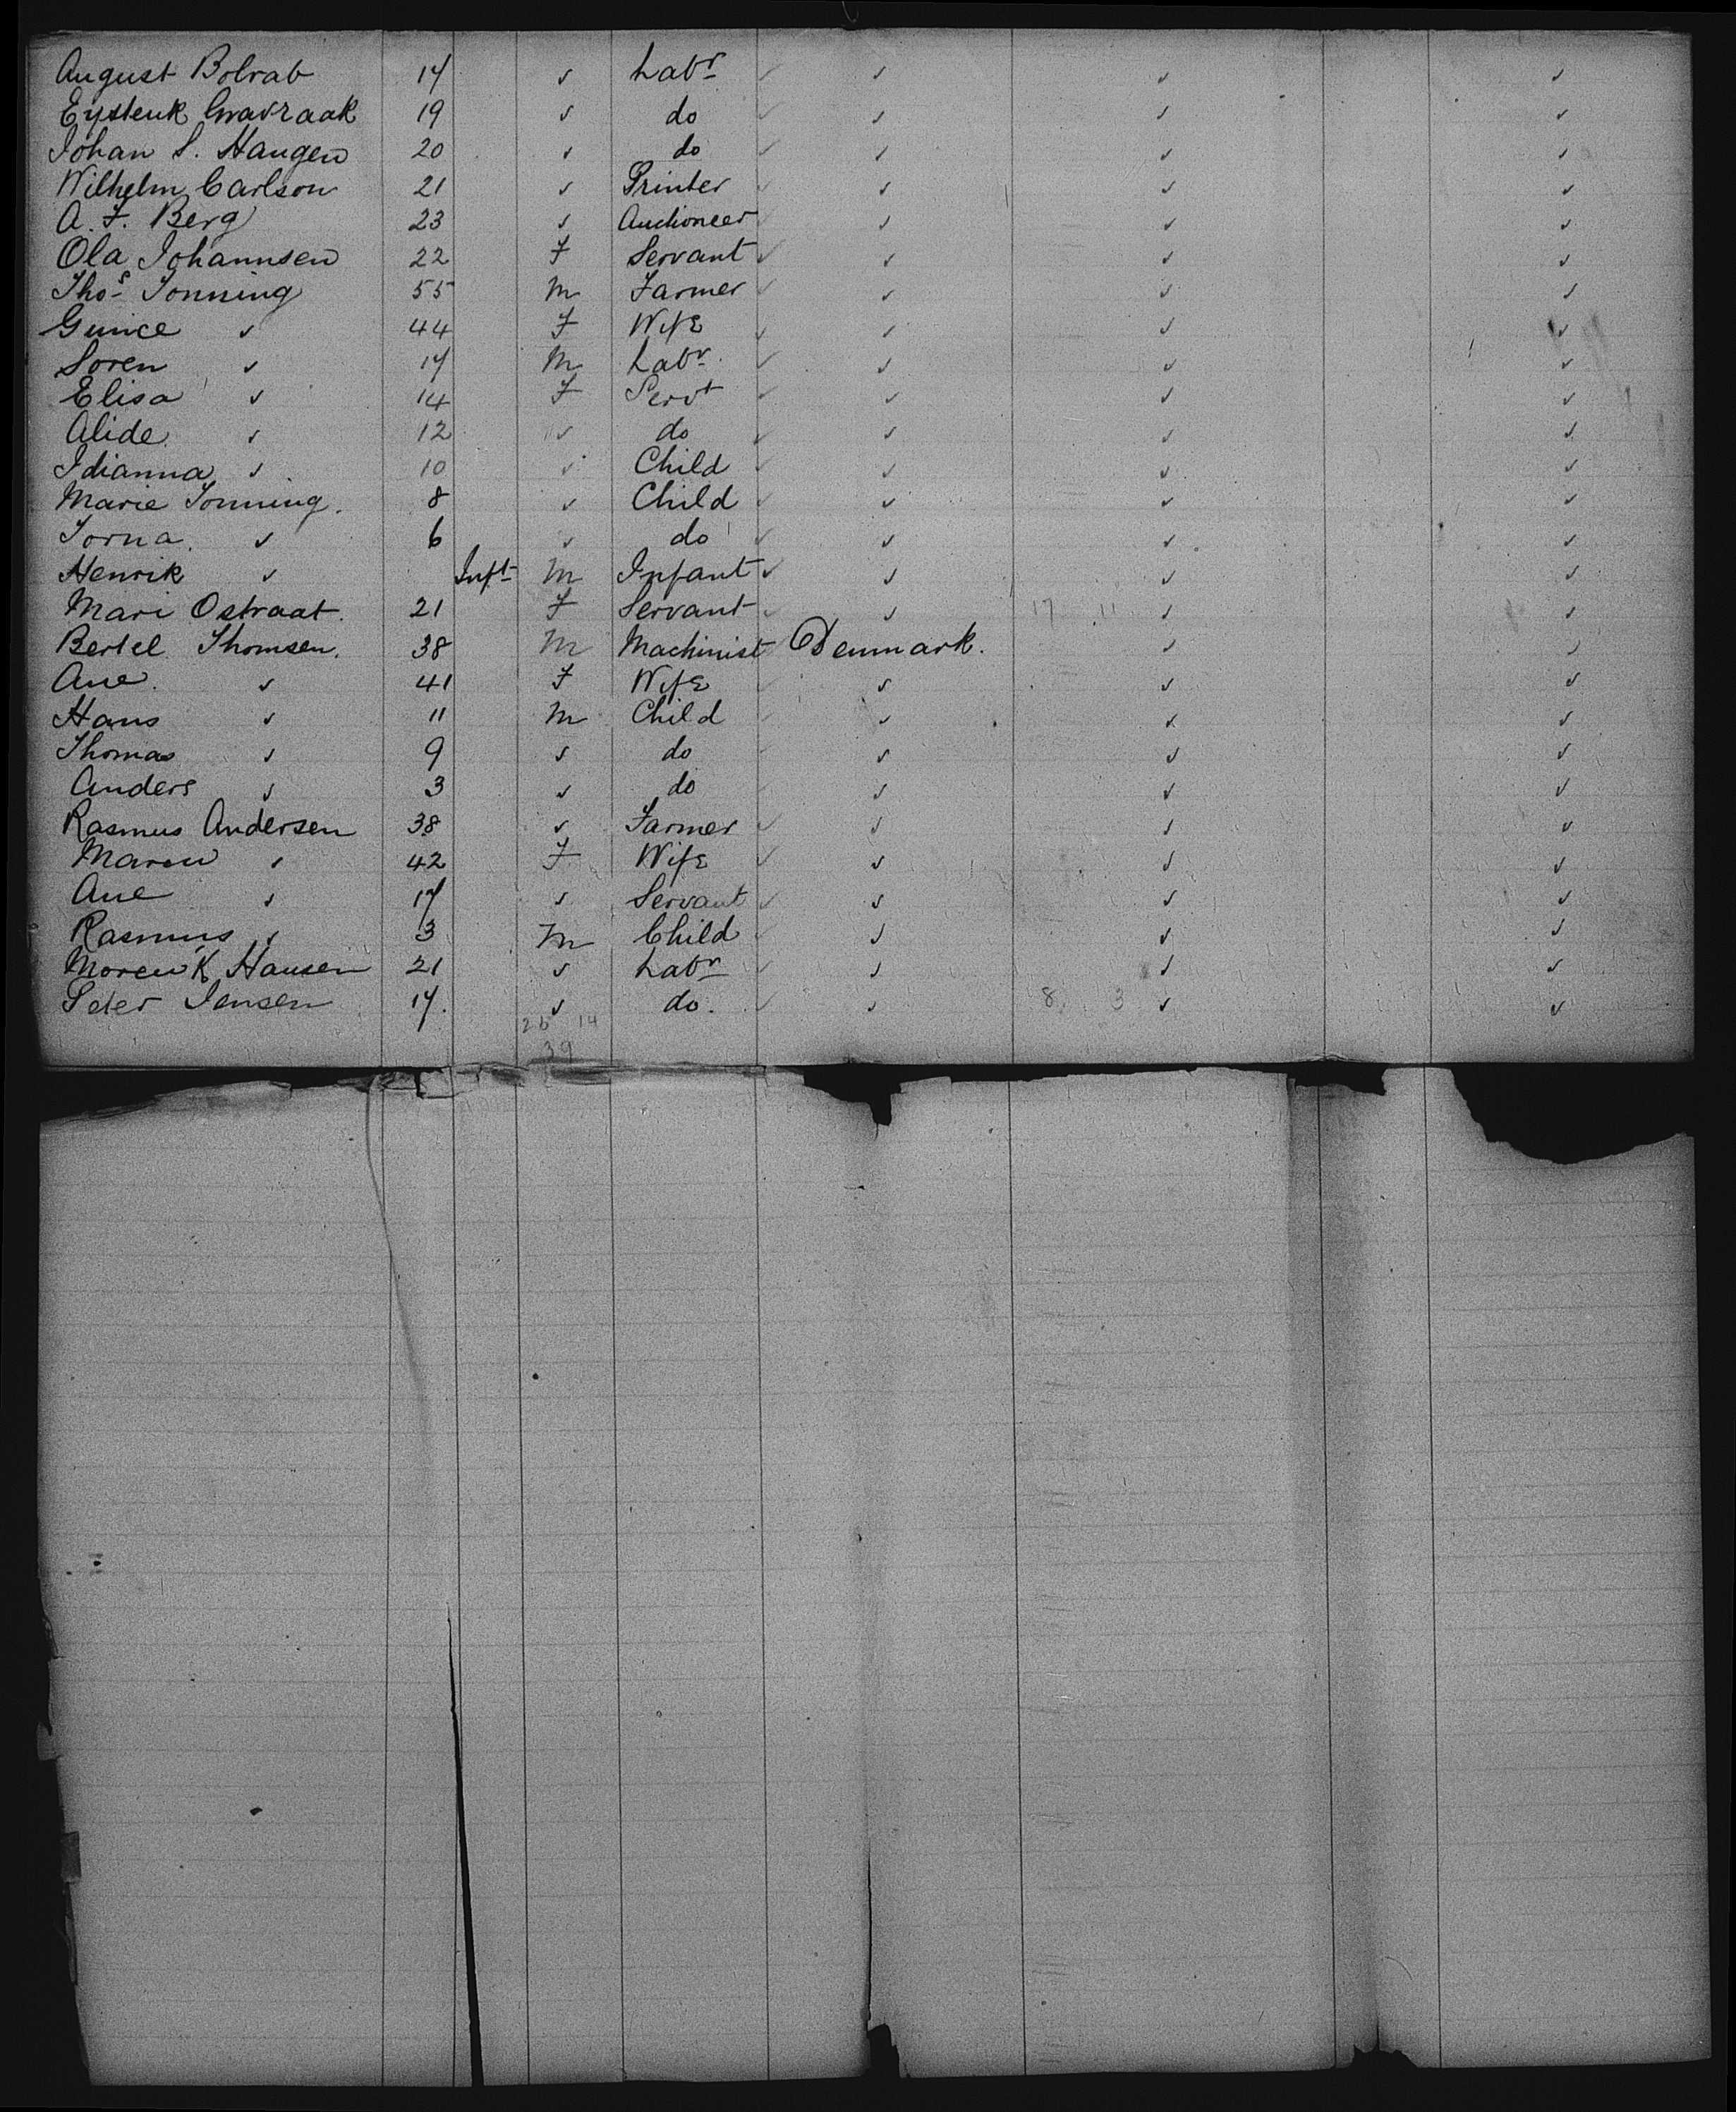 August Bolrab 17 " Labr " " " "
Eystenk Gravraak 19 " do " " " "
Johan S. Haugen 20 " do " " " "
Wilhelm Carlson 21 " Printer " " " "
A. F. Berg 23 " Auctioneer " " " "
Ola Johannsen 22 F Servant " " " "
Thos Tonning 55 M Farmer " " " "
Gunice " 44 F Wife " " " "
Soren " 17 M Labr " " " "
Elisa " 14 F Servt " " " "
Alide " 12 " do " " " "
Idianna " 10 " Child " " " "
Marie Tonning. 8 " Child " " " "
Torna. " 6 " do " " " "
Henrik " Inft M Infant " " " "
Mari Ostraat. 21 F Servant " " 17 11 " "
Bertel Thomsen. 38 M Machinist Denmark. " "
Ane. " 41 F Wife " " " "
Hans " 11 M Child " " " "
Thomas " 9 " do " " " "
Anders " 3 " do " " " "
Rasmus Andersen 38 " Farmer " " " "
Maren " 42 F Wife " " " "
Ane " 17 " Servant " " " "
Rasmus " 3 M Child " " " "
Moren K Hansen 21 " Labr " " " "
Peter Jensen 17. " do. " " 8 3 " "
26 14
39